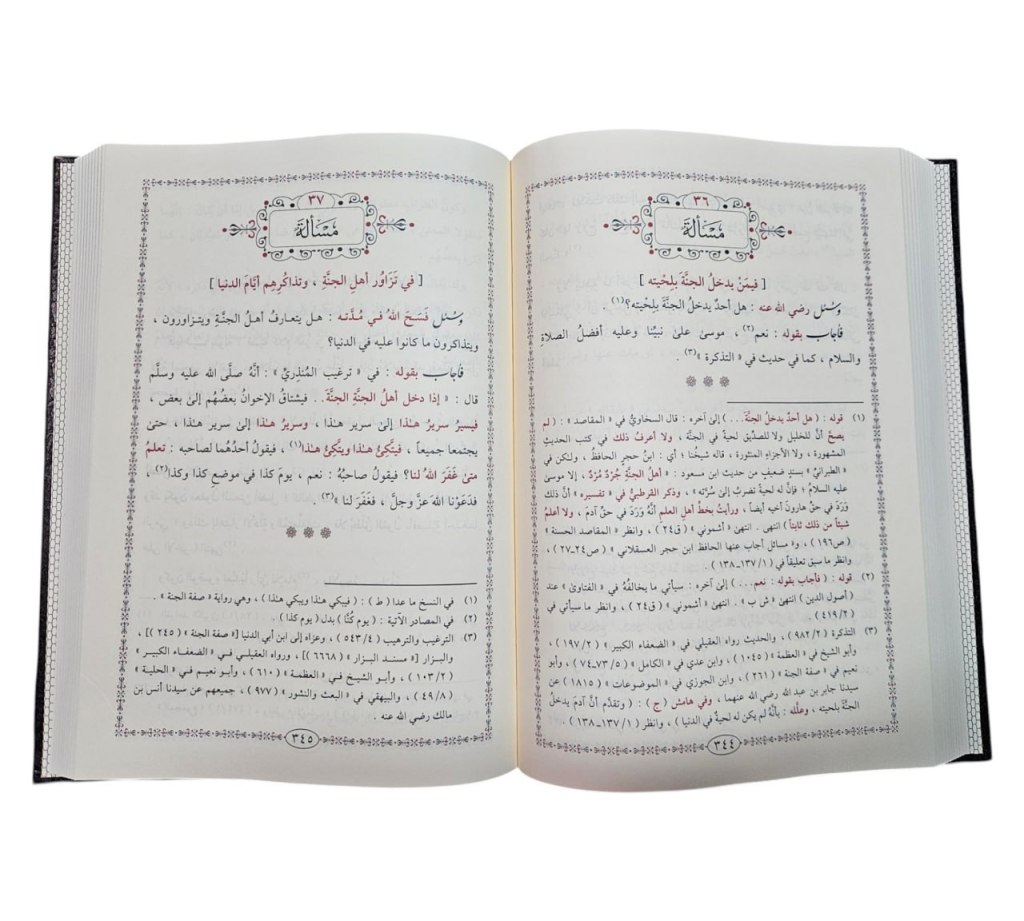 ٣٦
مَسْأَلَة
[ فيمَنْ يدخلُ الجنَّةَ بلِحْيته ]
وسُئل رضي الله عنه : هل أحدٌ يدخلُ الجنَّةَ بلِحْيته؟(١) .
فأجاب بقوله : نعم(٢) ، موسىٰ علىٰ نبيِّنا وعليه أفضلُ الصلاةِ
والسلام ، كما في حديث في « التذكرة »(٣) .
(١) قوله : ( هل أحدٌ يدخلُ الجنَّةَ . . . ) إلىٰ آخره : قال السخاويُّ في « المقاصد » : ( لم
يصحَّ أنَّ للخليل ولا للصدِّيق لحيةً في الجنَّة ، ولا أعرفُ ذلك في كتب الحديثِ
المشهورة ، ولا الأجزاءِ المنثورة ، قاله شيخُنا ؛ أي : ابنُ حجرٍ الحافظُ ، ولكن في
« الطبرانيِّ » بسندٍ ضعيفٍ من حديث ابن مسعود : « أهلُ الجنَّةِ جُرْدٌ مُرْدٌ ، إلا موسىٰ
عليه السلامُ ؛ فإنَّ له لحيةً تضربُ إلىٰ سُرَّته » ، وذكر القرطبيُّ في « تفسيره » أنَّ ذلك
وَرَدَ في حقِّ هارونَ أخيه أيضاً ، ورأيتُ بخطِّ أهلِ العلم أنَّهُ وَرَدَ في حقِّ آدمَ ، ولا أعلمُ
شيئاً من ذلك ثابتاً ) انتهى . انتهىٰ « أشموني » ( ق٢٤ ) ، وانظر « المقاصد الحسنة »
( ص١٩٦ ) ، و« مسائل أجاب عنها الحافظ ابن حجر العسقلاني » ( ص٢٤-٢٧ ) ،
وانظر ما سبق تعليقاً في ( ١/ ١٣٧-١٣٨ ) .
(٢) قوله : ( فأجاب بقوله : نعم . . . ) إلىٰ آخره : سيأتي ما يخالفُهُ في « الفتاوىٰ » عند
( أصول الدين ) انتهىٰ « ش ب » . انتهىٰ « أشموني » ( ق٢٤ ) ، وانظر ما سيأتي في
( ٢/ ٤١٩ ) .
(٣) التذكرة ( ٢/ ٩٨٢ ) ، والحديث رواه العقيلي في « الضعفاء الكبير » ( ٢/ ١٩٧ ) ،
وأبو الشيخ في « العظمة » ( ١٠٤٥ ) ، وابن عدي في « الكامل » ( ٥/ ٧٣-٧٤ ) ، وأبو
نعيم في « صفة الجنة » ( ٢٦١ ) ، وابن الجوزي في « الموضوعات » ( ١٨١٥ ) عن
سيدنا جابر بن عبد الله رضي الله عنهما ، وفي هامش ( ج ) : ( وتقدَّم أنَّ آدمَ يدخلُ
الجنَّةَ بلحيته ، وعلَّله : بأنَّهُ لم يكن له لحيةٌ في الدنيا ) ، وانظر ( ١/ ١٣٧-١٣٨ ) .
٣٤٤
٣٧
مَسْأَلَة
[ في تَزَاوُر أهلِ الجنَّةِ ، وتذاكُرِهم أيَّامَ الدنيا ]
وسُئل فَسَحَ اللهُ في مُدَّته : هل يتعارفُ أهلُ الجنَّةِ ويتزاورون ،
ويتذاكرون ما كانوا عليه في الدنيا؟
فأجاب بقوله : في « ترغيب المُنذِريِّ » : أنَّهُ صلَّى الله عليه وسلَّم
قال : « إذا دخل أهلُ الجنَّةِ الجنَّةَ . . فيشتاقُ الإخوانُ بعضُهُم إلىٰ بعض ،
فيسيرُ سريرُ هـٰذا إلىٰ سرير هـٰذا ، وسريرُ هـٰذا إلىٰ سرير هـٰذا ، حتىٰ
يجتمعا جميعاً ، فيتَّكئُ هـٰذا ويتَّكئُ هـٰذا(١) ، فيقولُ أحدُهُما لصاحبه : تعلمُ
متىٰ غَفَرَ اللهُ لنا؟ فيقولُ صاحبُهُ : نعم ، يومَ كذا في موضعِ كذا وكذا(٢) ،
فدَعَوْنا اللهَ عزَّ وجلَّ ، فغَفَرَ لنا »(٣) .
(١) في النسخ ما عدا ( ط ) : ( فيبكي هـٰذا ويبكي هـٰذا ) ، وهي رواية « صفة الجنة » .
(٢) في المصادر الآتية : ( يوم كُنَّا ) بدل ( يوم كذا ) .
(٣) الترغيب والترهيب ( ٤/ ٥٤٣ ) ، وعزاه إلى ابن أبي الدنيا [« صفة الجنة » ( ٢٤٥ )] ،
والبزار [« مسند البزار » ( ٦٦٦٨ )] ، ورواه العقيلي في « الضعفاء الكبير »
( ٢/ ١٠٣ ) ، وأبو الشيخ في « العظمة » ( ٦١٠ ) ، وأبو نعيم في « الحلية »
( ٨/ ٤٩ ) ، والبيهقي في « البعث والنشور » ( ٩٧٧ ) ، جميعهم عن سيدنا أنس بن
مالك رضي الله عنه .
٣٤٥